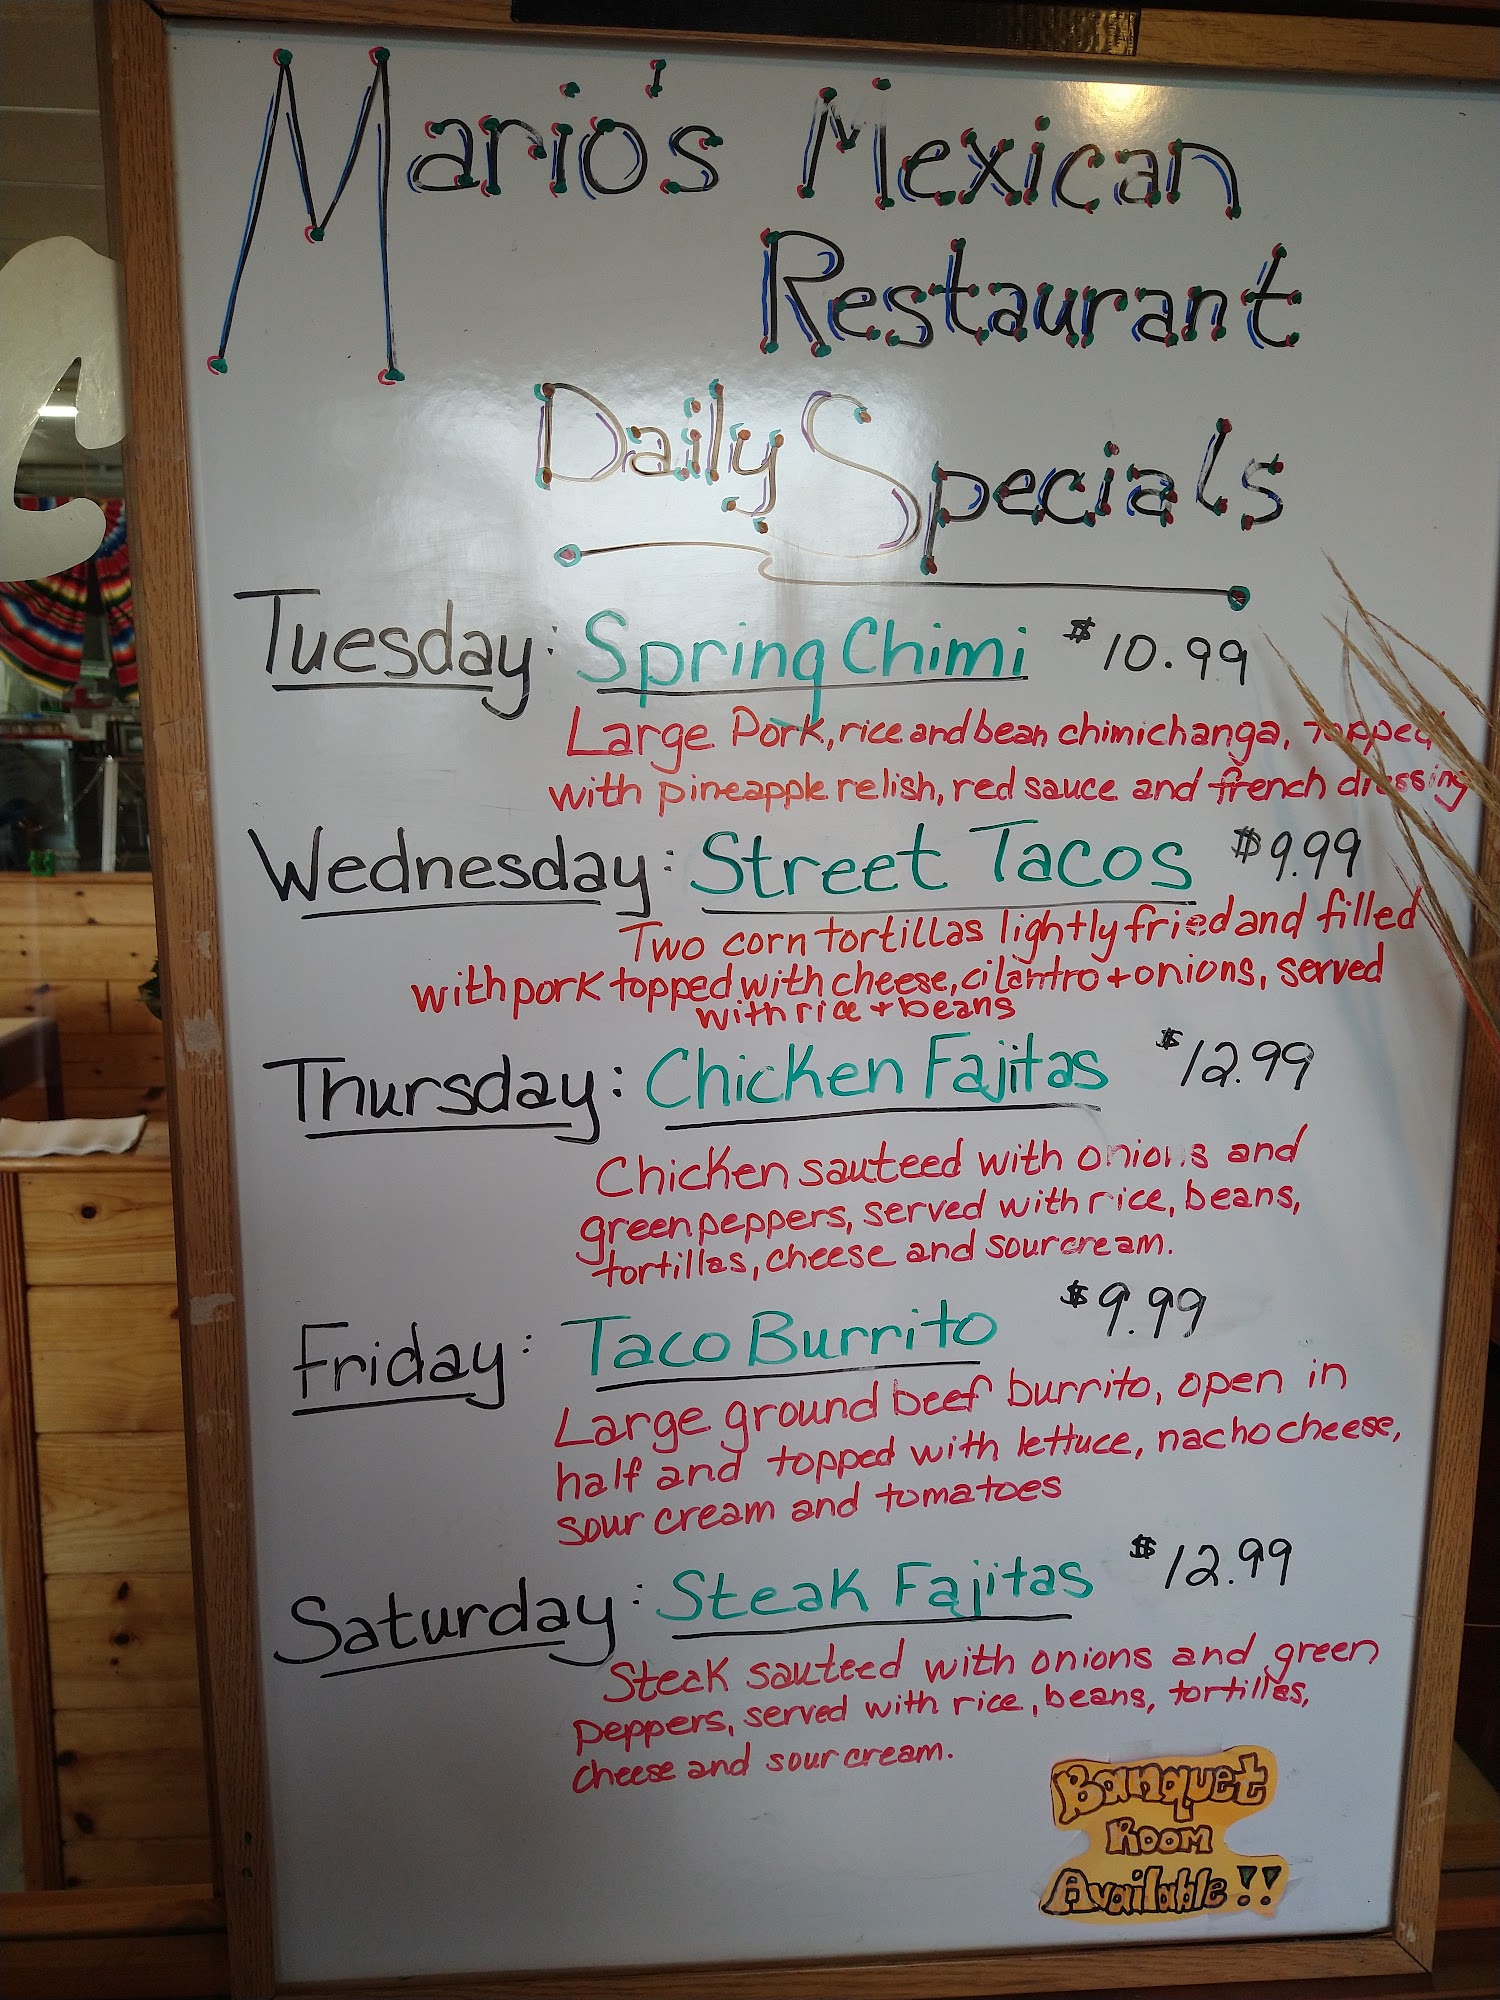 Mario's Mexican
Restaurant
Daily Specials
Tuesday: Spring Chimi $10.99
Large Pork, rice and bean chimichanga, topped
with pineapple relish, red sauce and french dressing
Wednesday: Street Tacos $9.99
Two corn tortillas lightly fried and filled
with pork topped with cheese, cilantro + onions, served
with rice + beans
Thursday: Chicken Fajitas $12.99
Chicken sauteed with onions and
green peppers, served with rice, beans,
tortillas, cheese and sour cream.
Friday: Taco Burrito $9.99
Large ground beef burrito, open in
half and topped with lettuce, nacho cheese,
sour cream and tomatoes
Saturday: Steak Fajitas $12.99
Steak sauteed with onions and green
peppers, served with rice, beans, tortillas,
cheese and sour cream.
Banquet
Room
Available!!